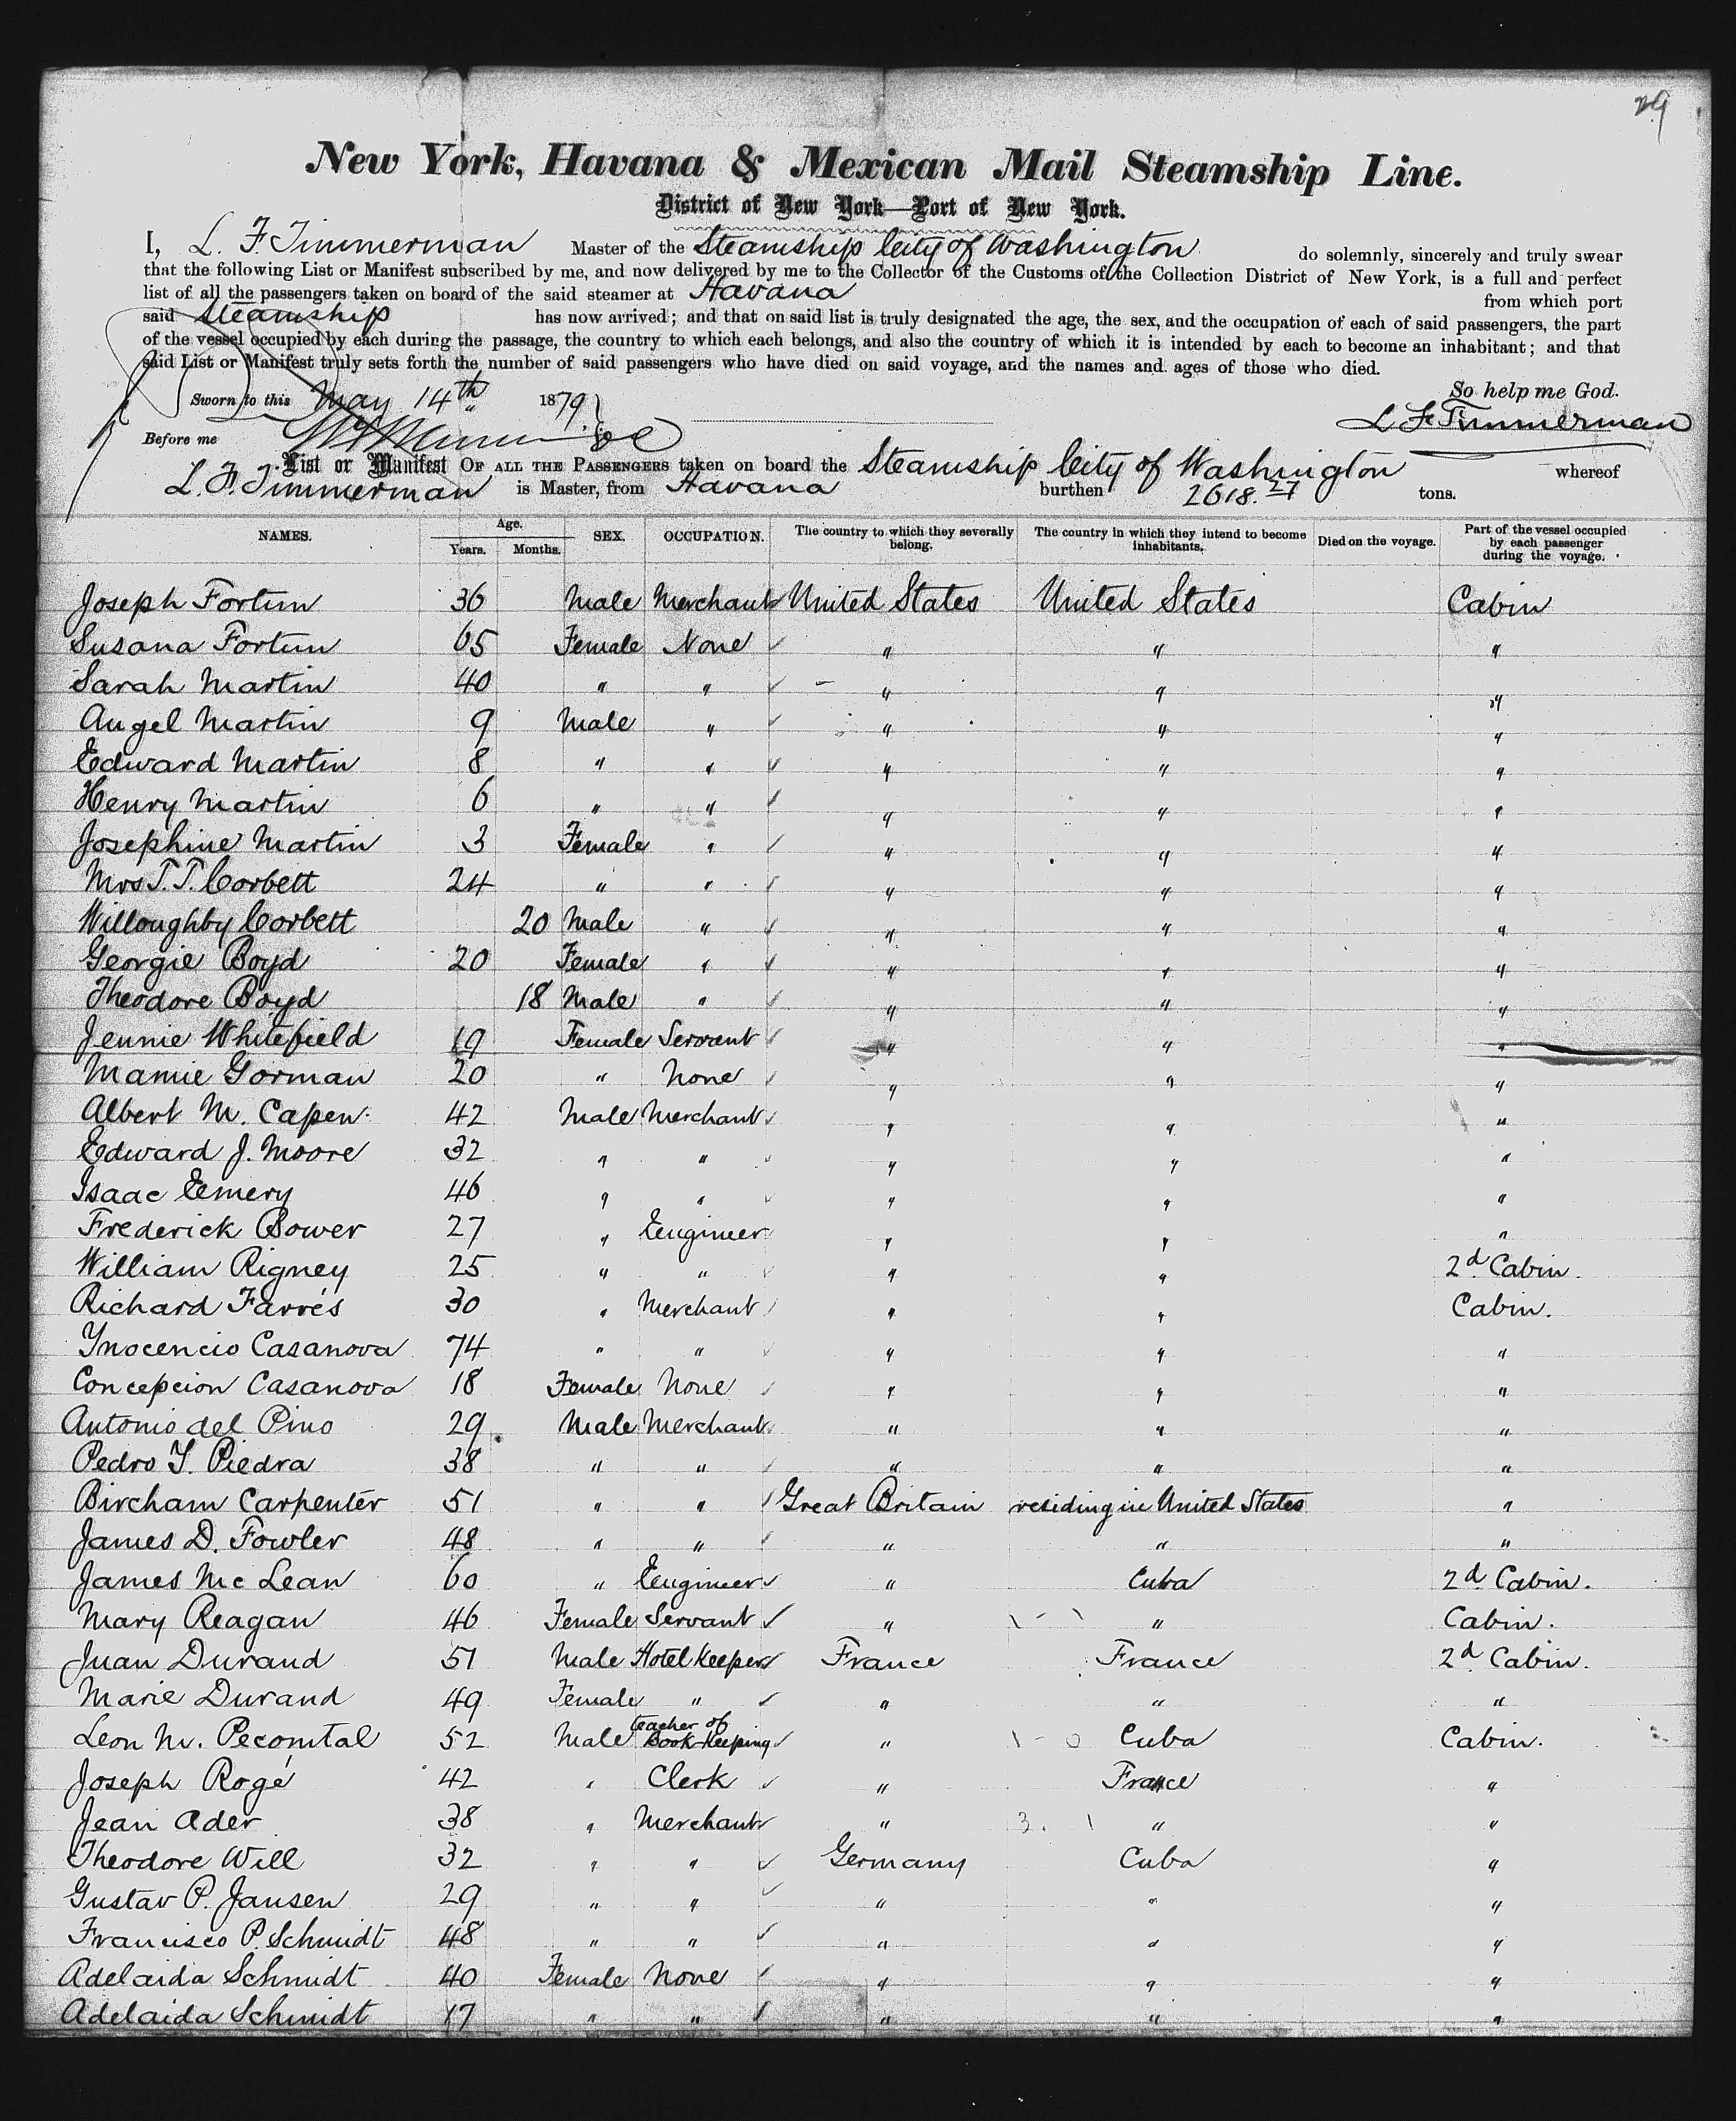 29
New York, Havana & Mexican Mail Steamship Line.
District of New York—Port of New York.
I, L. F. Timmerman Master of the Steamship City of Washington do solemnly, sincerely and truly swear
that the following List or Manifest subscribed by me, and now delivered by me to the Collector of the Customs of the Collection District of New York, is a full and perfect
list of all the passengers taken on board of the said steamer at Havana from which port
said Steamship has now arrived; and that on said list is truly designated the age, the sex, and the occupation of each of said passengers, the part
of the vessel occupied by each during the passage, the country to which each belongs, and also the country of which it is intended by each to become an inhabitant; and that
said List or Manifest truly sets forth the number of said passengers who have died on said voyage, and the names and ages of those who died.
So help me God.
Sworn to this May 14th 1879
L F Timmerman
Before me
List or Manifest OF ALL THE PASSENGERS taken on board the Steamship City of Washington whereof
L. F. Timmerman is Master, from Havana burthen 2618.27 tons.
NAMES. Age. Years. Months. SEX. OCCUPATION. The country to which they severally belong. The country in which they intend to become inhabitants. Died on the voyage. Part of the vessel occupied by each passenger during the voyage.
Joseph Fortun 36 Male Merchant United States United States Cabin
Susana Fortun 65 Female None " " "
Sarah Martin 40 " " " " "
Angel Martin 9 Male " " " "
Edward Martin 8 " " " " "
Henry Martin 6 " " " " "
Josephine Martin 3 Female " " " "
Mrs T. T. Corbett 24 " " " " "
Willoughby Corbett 20 Male " " " "
Georgie Boyd 20 Female " " " "
Theodore Boyd 18 Male " " " "
Jennie Whitefield 19 Female Servant " " "
Mamie Gorman 20 " None " " "
Albert M. Capen 42 Male Merchant " " "
Edward J. Moore 32 " " " " "
Isaac Emery 46 " " " " "
Frederick Bower 27 " Engineer " " "
William Rigney 25 " " " " 2d Cabin.
Richard Farrés 30 " Merchant " " Cabin.
Ynocencio Casanova 74 " " " " "
Concepcion Casanova 18 Female None " " "
Antonio del Pino 29 Male Merchant " " "
Pedro Y. Piedra 38 " " " " "
Bircham Carpenter 51 " " Great Britain residing in United States "
James D. Fowler 48 " " " " "
James Mc Lean 60 " Engineer " Cuba 2d Cabin.
Mary Reagan 46 Female Servant " " Cabin.
Juan Durand 51 Male Hotel Keeper France France 2d Cabin.
Marie Durand 49 Female " " " "
Leon M. Pecomtal 52 Male teacher of Book-Keeping " Cuba Cabin.
Joseph Rogé 42 " Clerk " France "
Jean Ader 38 " Merchant " " "
Theodore Will 32 " " Germany Cuba "
Gustav P. Jansen 29 " " " " "
Francisco P. Schmidt 48 " " " " "
Adelaida Schmidt 40 Female None " " "
Adelaida Schmidt 17 " " " " "